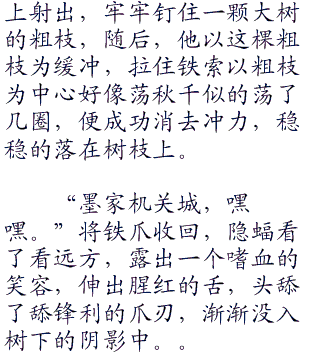 上射出，牢牢钉住一颗大树
的粗枝，随后，他以这棵粗
枝为缓冲，拉住铁索以粗枝
为中心好像荡秋千似的荡了
几圈，便成功消去冲力，稳
稳的落在树枝上。
“墨家机关城，嘿
嘿。”将铁爪收回，隐蝠看
了看远方，露出一个嗜血的
笑容，伸出腥红的舌，头舔
了舔锋利的爪刃，渐渐没入
树下的阴影中。。